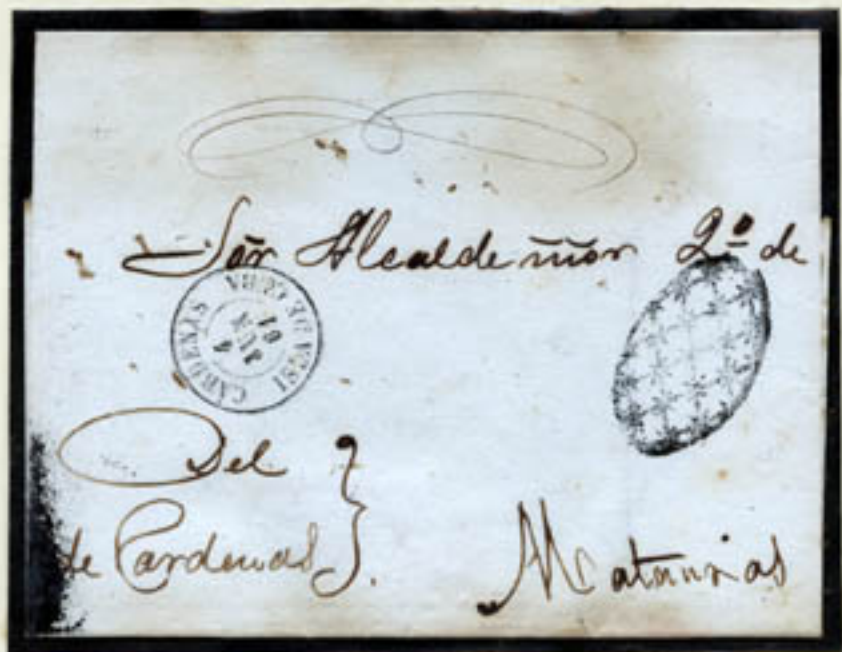 Sōr Alcalde mōr 2º de
CARDENAS
ISLA DE CUBA
4
JUN
61
Del
de Cardenas
Matanzas